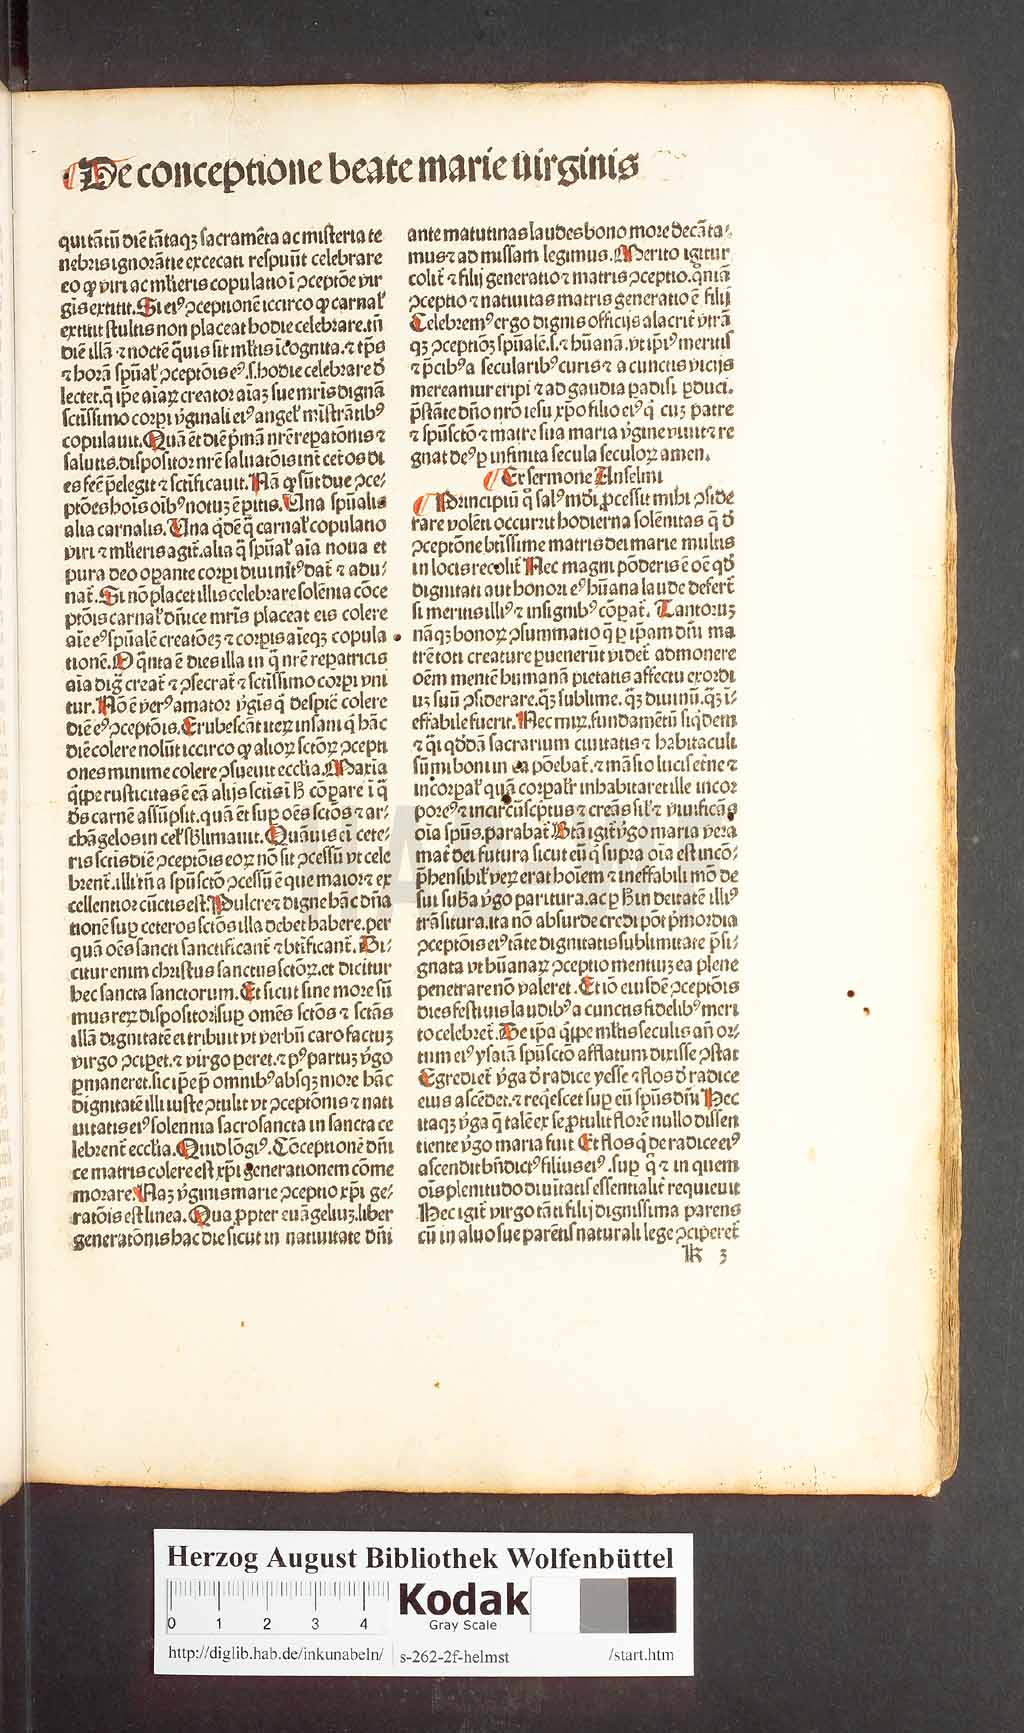 De conceptione beate marie uirginis
qui tãtũ diẽ tãtaqꝫ sacramẽta ac misteria te
nebris ignorãtie excecati respuũt celebrare
eo ꝙ viri ac mĺieris copulatio ĩ ꝯceptõe vir
gĩs extitit. Si eiꝰ ꝯceptionẽ iccirco ꝙ carnaĺ
extitit stultis non placeat hodie celebrare. tñ
diẽ illã ⁊ noctẽ q̃uis sit mĺtis ĩcognita. ⁊ tp̃s
⁊ horã sp̃uaĺ ꝯceptõis eꝰ. s. hodie celebrare đ
lectet. q̃ ip̃e aĩaꝝ creator aĩaꝫ sue mr̃is dignã
sctissimo corpi v̾ginali eiꝰ angeĺ mistrãtibꝰ
copulauit. Quã et̃ diẽ p̃mã nr̃e repatõnis ⁊
salutis. dispositor nr̃e saluatõis int̃ cet̃os di
es feẽ p̃elegit ⁊ sctificauit. Nã ꝙ sũt due ꝯce-
ptões hoĩs oĩbꝰ notuꝫ ẽ p̃itis. Una sp̃ualis
alia carnalis. Una q̃dẽ q̃ carnaĺ copulatio
viri ⁊ mĺieris agit̃. alia q̃ sp̃uaĺ aĩa noua et
pura deo oꝑante corpi diuinitꝰ dat̃ ⁊ adu-
nat̃. Si nõ placet illis celebrare solẽnia cõce
ptõis carnaĺ dñice mr̃is placeat eis colere
aĩe eꝰ sp̃ualẽ creatõeꝫ ⁊ corpis aĩeqꝫ copula
tionẽ. O q̃nta ẽ dies illa in q̃ nr̃e repatricis
aĩa dig̃ creat̃ ⁊ ꝯsecrat̃ ⁊ sctissimo corpi vni
tur. Nõ ẽ verꝰ amator v̾gis q̃ despic̃ colere
diẽ eꝰ ꝯceptõis. Erubescãt iteꝝ insani q̃ hãc
diẽ colere nolũt iccirco ꝙ alioꝝ sctõꝝ ꝯcepti
ones minime colere ꝯsueuit ecclĩa. Maxĩa
q̃ipe rusticitas ẽ eã alijs sctis ĩ h̾ cõpare ĩ q̃
dꝰs carnẽ assũpsit. quã et̃ suꝑ oẽs sctos ⁊ ar-
chãgelos in ceĺ sb̾limauit. Quãuis ei cete-
ris sctis diẽ ꝯceptõis eoꝝ nõ sit ꝯcessũ vt cele
brent̃. illi tñ a spũscto ꝯcessũ ẽ que maior ⁊ ex
cellentior cũctis est. Pulcre ⁊ digne hãc dñã
tionẽ suꝑ ceteros sctõs illa debet habere. per
quã oẽs sancti sanctificant̃ ⁊ btĩficant̃. Di-
citur enim christus sanctus sctõꝝ. et dicitur
hec sancta sanctorum. Et sicut sine more sũ
mus reꝝ dispositor suꝑ omẽs sctõs ⁊ sctãs
illã dignitatẽ ei tribuit vt verbũ caro factuꝫ
virgo ꝯcipet. ⁊ virgo peret. ⁊ pꝰ partuꝫ v̾go
ꝑmaneret. sic ip̃e p̃ omnibꝰ absqꝫ more hãc
dignitatẽ illi iuste ꝯtulit vt ꝯceptõnis ⁊ nati
uitatis eiꝰ solennia sacrosancta in sancta ce
lebrent̃ ecclĩa. Quid lõgiꝰ. Cõceptionẽ dñi
ce matris colere est xp̃i generationem cõme
morare. Naꝫ v̾ginis marie ꝯceptio xp̃i ge-
ratõis est linea. Qua ꝓpter euãgeliuꝫ. liber
generatõnis hac die sicut in natiuitate dñi
ante matutinas laudes bono more decãta-
mus ⁊ ad missam legimus. Merito igitur
colit̃ ⁊ filij generatio ⁊ matris ꝯceptio. qm̃ã
ꝯceptio ⁊ natiuitas matris generatio ẽ filij
Celebremꝰ ergo dignis officijs alacrit̃ vtrã
qꝫ ꝯceptiõꝫ sp̃ualẽ. s. ⁊ hũanã. vt ip̃iꝰ meritis
⁊ p̃cibꝰ a secularibꝰ curis ⁊ a cunctis vicijs
mereamur eripi ⁊ ad gaudia padisi ꝑduci.
p̃stãte dño nr̃o iesu xp̃o filio eiꝰ q̃ cuꝫ patre
⁊ spũsctõ ⁊ matre sua maria v̾gine viuit ⁊ re
gnat deꝰ ꝑ infinita secula seculoꝝ amen.
Ex sermone Anselmi
Principiũ q̃ salꝰ mũdi ꝓcessit mihi ꝯside
rare volẽti occurrit hodierna solẽnitas q̃ đ
ꝯceptõne btĩssime matris dei marie multis
in locis recolit̃ Nec magni põderis ẽ oẽ qđ
dignitati aut honori eꝰ hũana laude defert̃
si meritis illiꝰ ⁊ insignibꝰ cõpat̃. Tantoruꝫ
nãqꝫ bonoꝝ ꝯsummatio q̃ ꝑ ip̃am dñi ma
trẽ toti creature ꝑuenerũt videt̃ admonere
oẽm mentẽ humanã pietatis affectu exordi
uꝫ suũ ꝯsiderare. q̃ꝫ sublime. q̃ꝫ diuinũ. q̃ꝫ ĩ-
effabile fuerit. Nec miꝝ. fundamẽtũ siq̃dem
⁊ q̃si qđdã sacrarium ciuitatis ⁊ habitaculi
sũmi boni in ea põebat̃. ⁊ mãsio lucis et̃ne ⁊
incorpaĺ quã corpalit̃ inhabitaret ille incor
poreꝰ ⁊ incircũscriptus ⁊ creãs siĺ ⁊ viuificãs
oĩa spũs. parabat̃ Btã igit̃ v̾go maria vera
mat̃ dei futura sicut eũ q̃ supra oĩa est incõ-
p̃hensibiĺ veꝝ erat hoĩem ⁊ ineffabili mõ de
sui sub̾a v̾go paritura. ac ꝑ h̾ in deitatẽ illiꝰ
trãsitura. ita nõ absurde credi põt p̃mordia
ꝯceptõis eiꝰ tãte dignitatis sublimitate p̃si-
gnata vt hũanaꝝ ꝯceptio mentiuꝫ ea plene
penetrare nõ valeret. Et iõ eiusdẽ ꝯceptõis
dies festiuis laudibꝰ a cunctis fidelibꝰ meri
to celebret̃. De ip̃a q̃ipe mĺtis seculis añ or-
tum eiꝰ ysaiã spũsctõ afflatum dixisse ꝯstat
Egrediet̃ v̾ga đ radice yesse ⁊ flos đ radice
eius ascẽdet. ⁊ reqͥescet suꝑ eũ spũs dñi Hec
itaqꝫ v̾ga q̃ talẽ ex se ꝓtulit florẽ nullo dissen
tiente v̾go maria fuit Et flos q̃ de radice eiꝰ
ascendit bñdictꝰ filius eiꝰ. suꝑ q̃ ⁊ in quem
oĩs plenitudo diuĩtatis essentialit̃ requieuit
Hec igit̃ virgo tãti filij dignissima parens
cũ in aluo sue parẽtis naturali lege ꝯciperet̃
k 3
HAB-WF
Herzog August Bibliothek Wolfenbüttel
0 1 2 3 4
Kodak
Gray Scale
http://diglib.hab.de/inkunabeln/ s-262-2f-helmst /start.htm